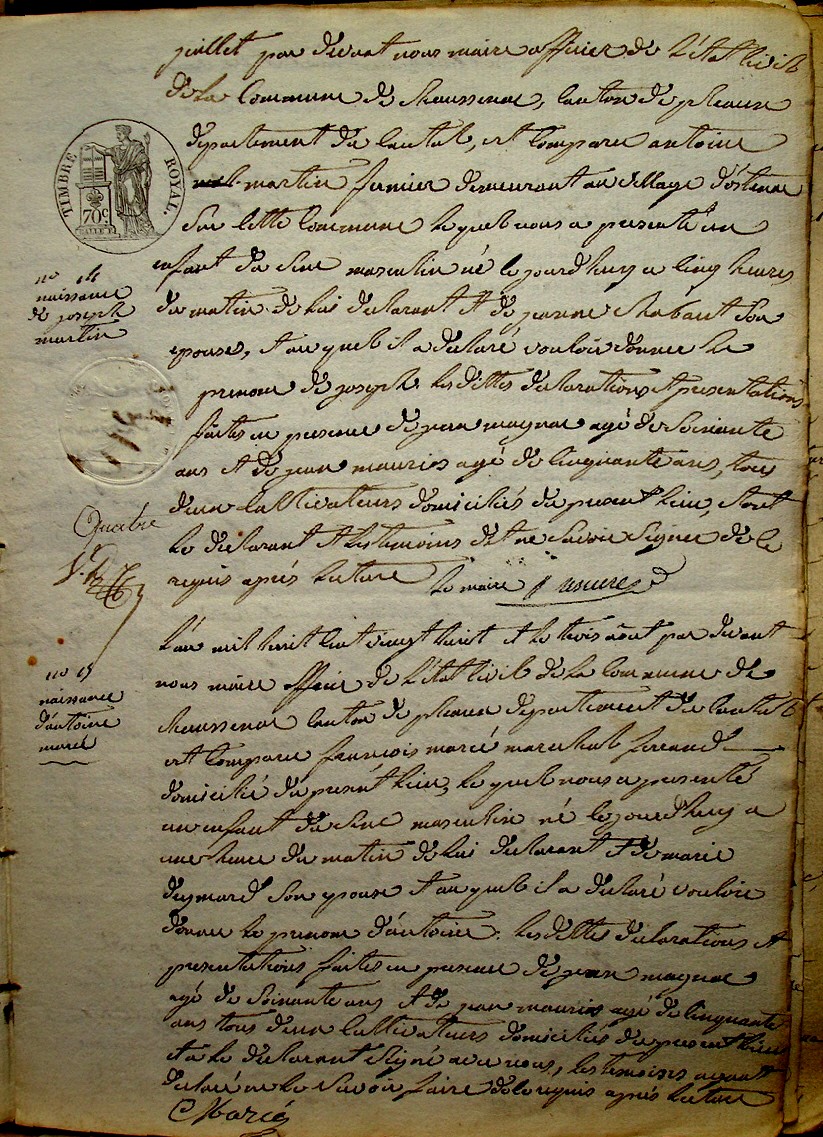 juillet par devant nous maire officier de l'état civil
de la Commune de chaussenac, Canton de pleaux
departement du Cantal, est Comparu antoine
martin fermier demeurant au village d'ostenac
Sur cette Commune lequel nous a presenté un
enfant du sexe masculin né le jourdhuy a cinq heures
du matin de lui declarant et de jeanne chabaut Son
epouse, et auquel il a declaré vouloir donner le
prenom de joseph. les dittes declarations et presentations
faites en presence de jean magnac agé de Soixante
ans et de jean maurios agé de Cinquante ans, tous
deux Cultivateurs domiciliés du present lieu, et ont
le declarant et les temoins dit ne Savoir Signer de ce
requis après lecture le maire
L'an mil huit Cent vingt huit et le trois août par devant
nous maire officier de l'état Civil de la Commune de
Chaussenac Canton de pleaux departement du Cantal
est Comparu françois marcé marechal ferrand
domicilié du present lieu, lequel nous a presenté
un enfant du sexe masculin né le jourdhuy a
une heure du matin de lui declarant et de marie
deymard Son epouse et auquel il a declaré vouloir
donner le prenom d'antoine. les dittes declarations et
presentations faites en presence de jean magnac
agé de Soixante ans et de jean maurios agé de Cinquante
ans tous deux Cultivateurs domiciliés du present lieu
et a le declarant Signé avec nous, les temoins ayant
declaré ne le Savoir faire de ce requis après lecture
Marcé
TIMBRE ROYAL.
70c.
no 14
naissance
de joseph
martin
no 15
naissance
d'antoine
marcé